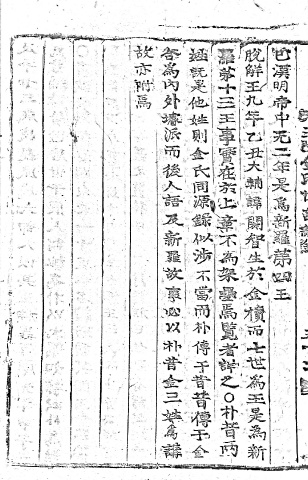 巳漢明帝中元二年是爲新羅第四王
脫解王九年乙丑大輔諱閼智生於金櫝而七世爲王是爲新
羅第十三王事實在於上章不爲架疊焉覽者詳之○朴昔兩
姓旣是他姓則金氏同源錄似涉不當而朴傳于昔昔傳于金
各爲內外壻派而後人語及新羅故事必以朴昔金三姓爲講
故亦附焉